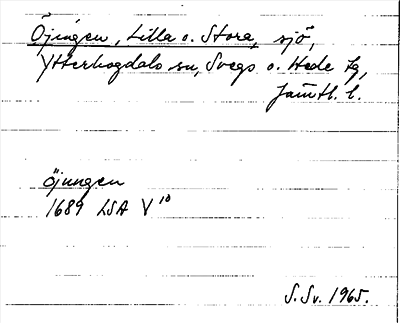 Öjingen, Lilla o. Stora, sjö,
Ytterhogdals sn, Svegs o. Hede tg,
Jämtl. l.
öjungen
1689 LSA V 10
S. Sv. 1965.